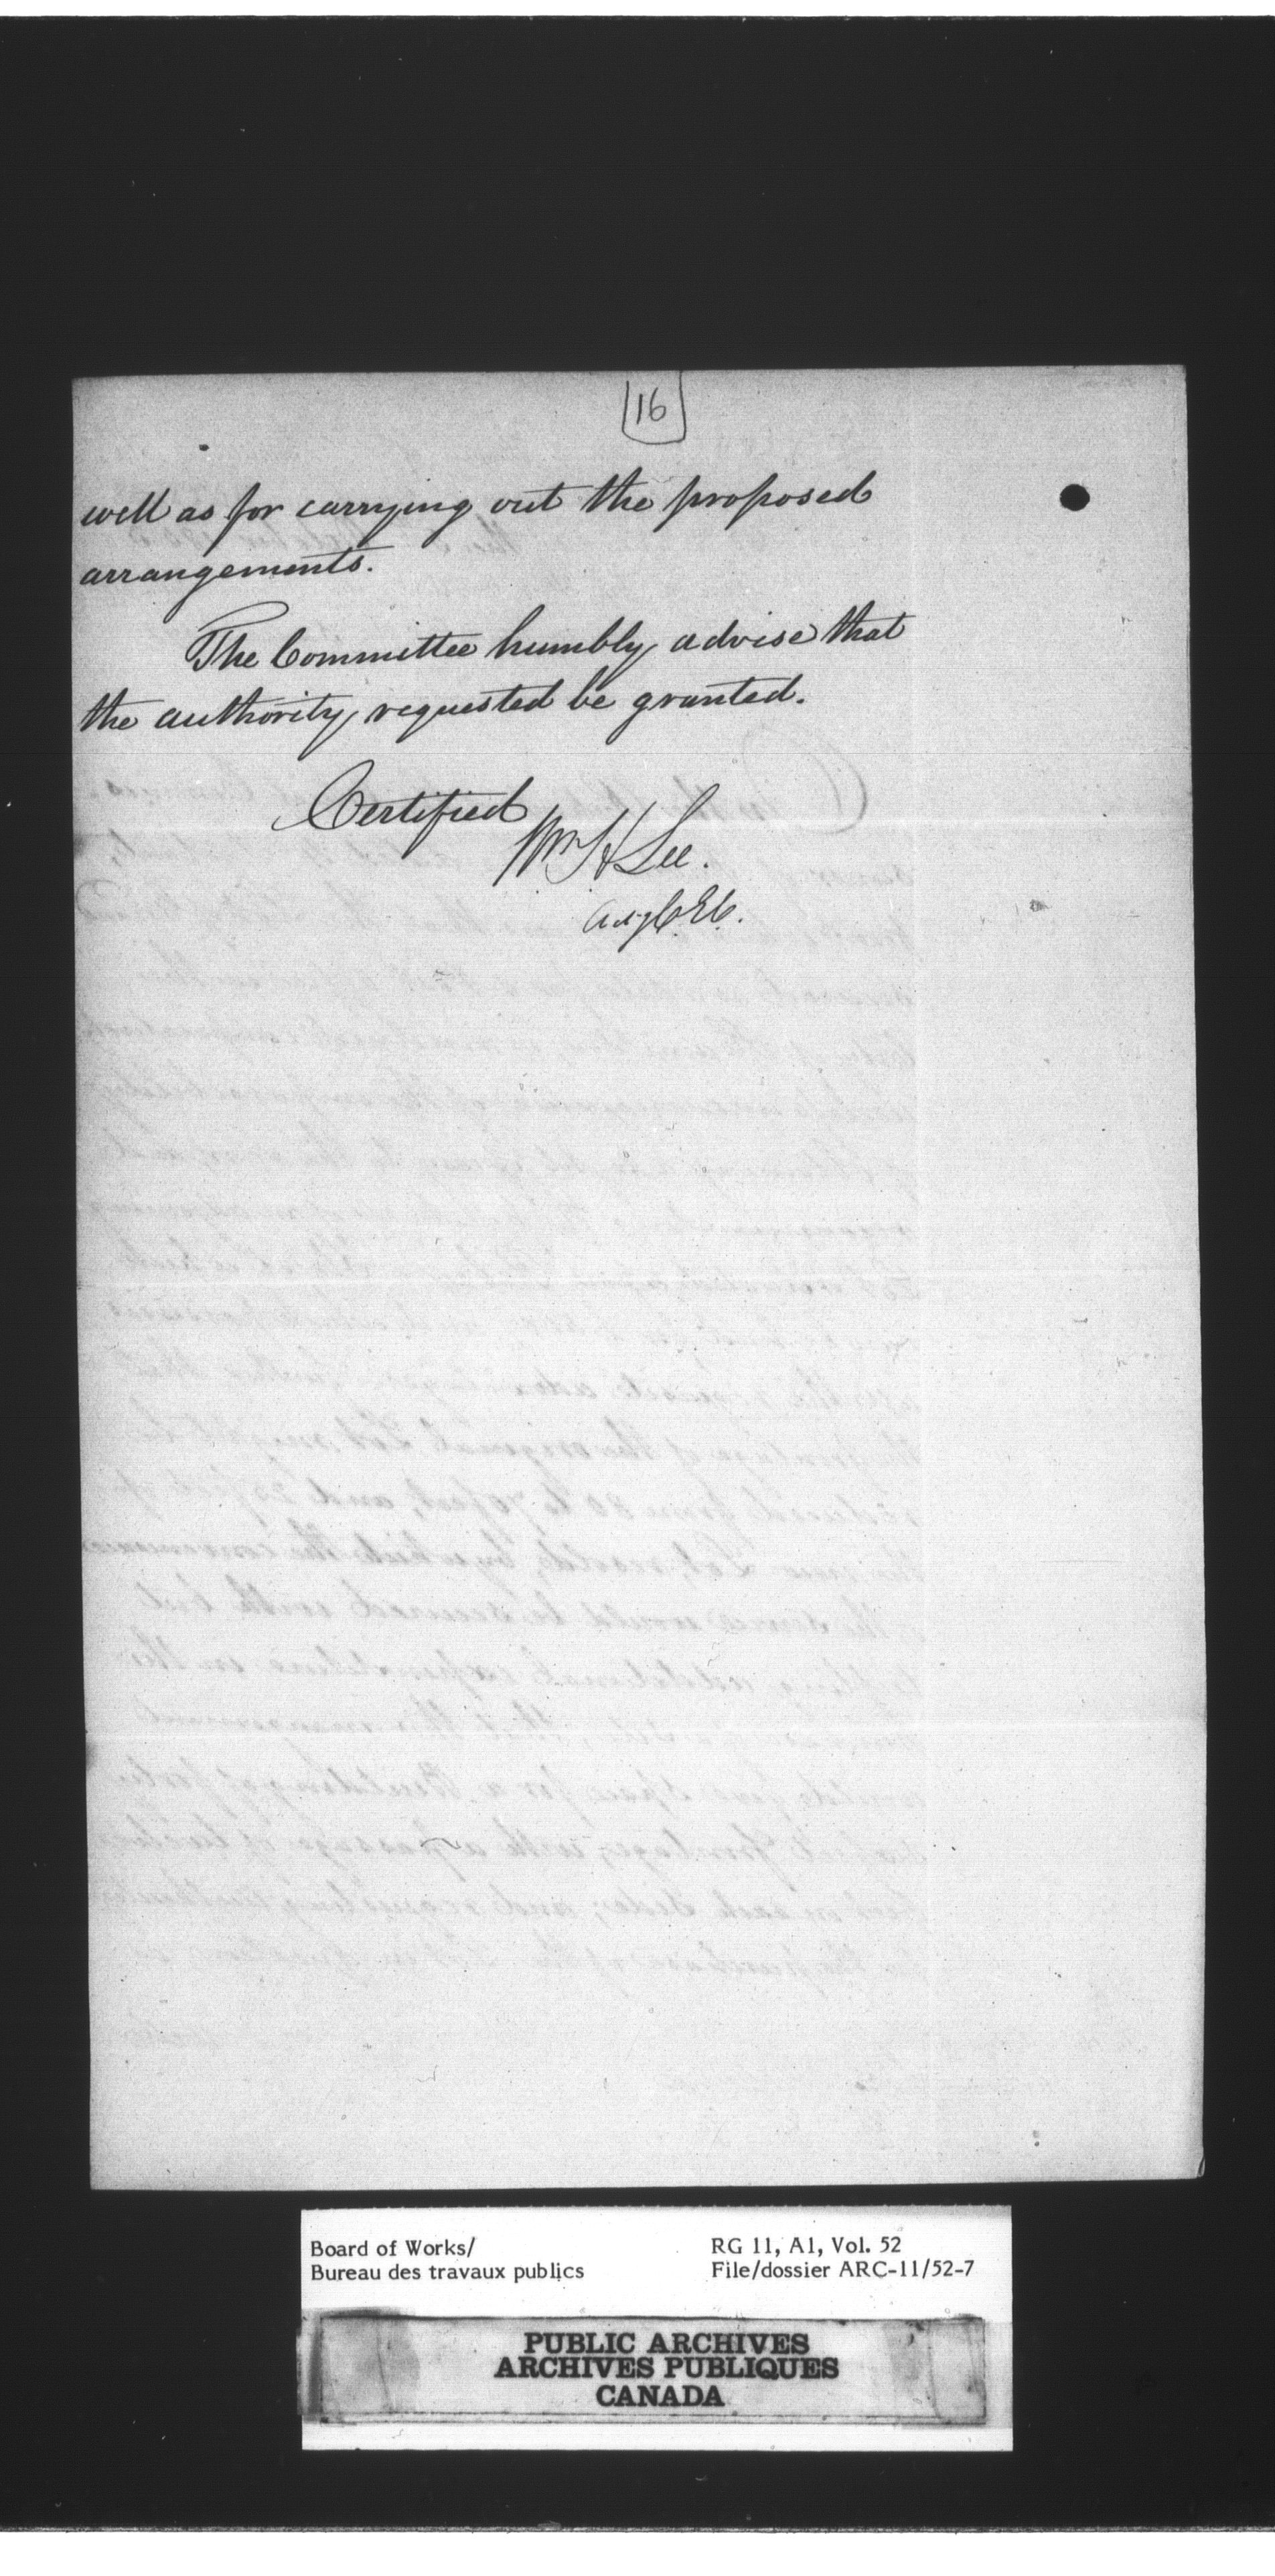 16
well as for carrying out the proposed
arrangements.
The Committee humbly advise that
the authority requested be granted.
Certified
Wm H Lee.
C.E.C.
Board of Works/
Bureau des travaux publics
RG 11, A1, Vol. 52
File/dossier ARC-11/52-7
PUBLIC ARCHIVES
ARCHIVES PUBLIQUES
CANADA